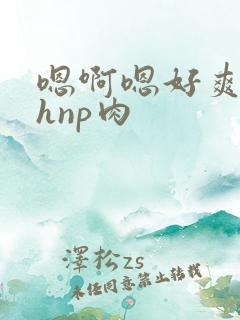 嗯啊嗯好爽
hnp肉
澤松zs
未经同意禁止转载